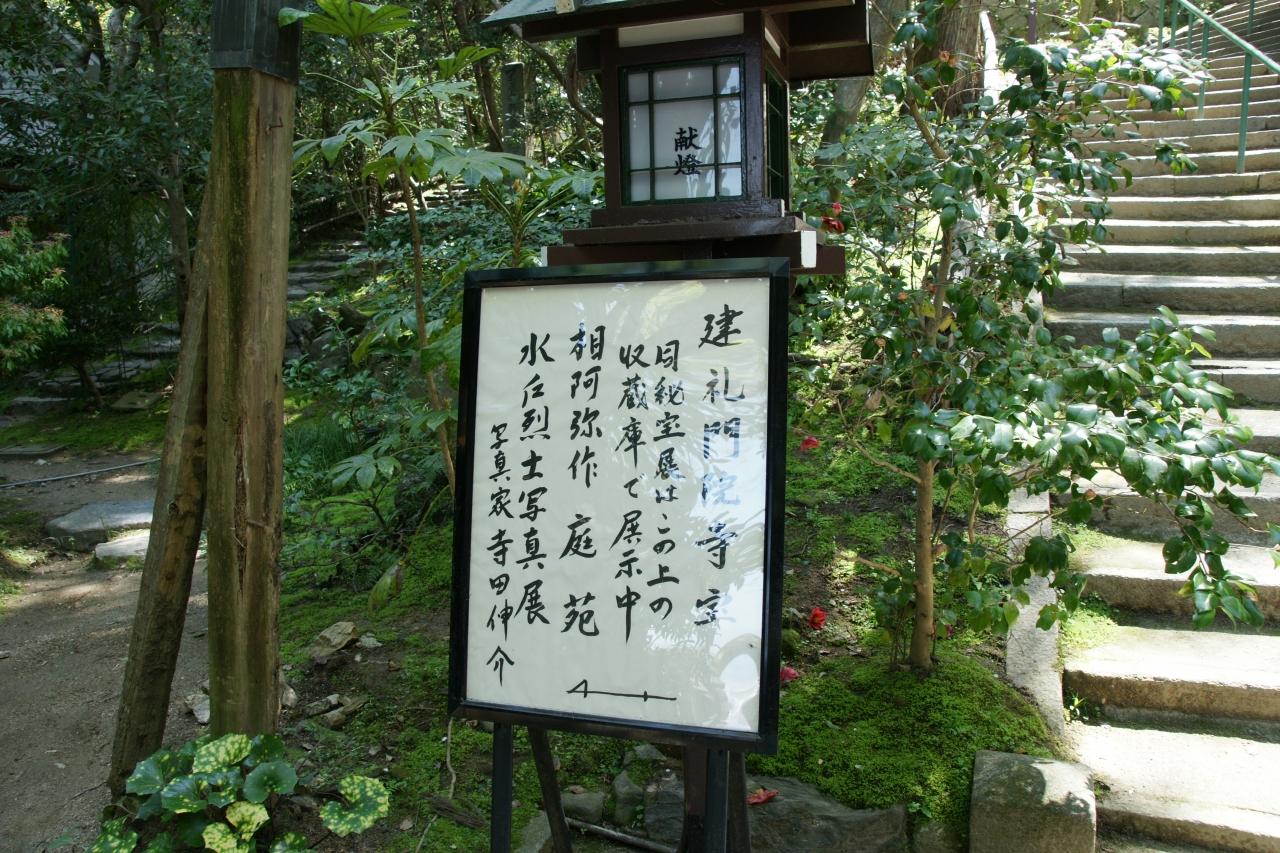 献燈
建礼門院寺宝
同秘宝展は、この上の
収蔵庫で展示中
相阿弥作 庭苑
水戸烈士写真展
写真家寺田伸介